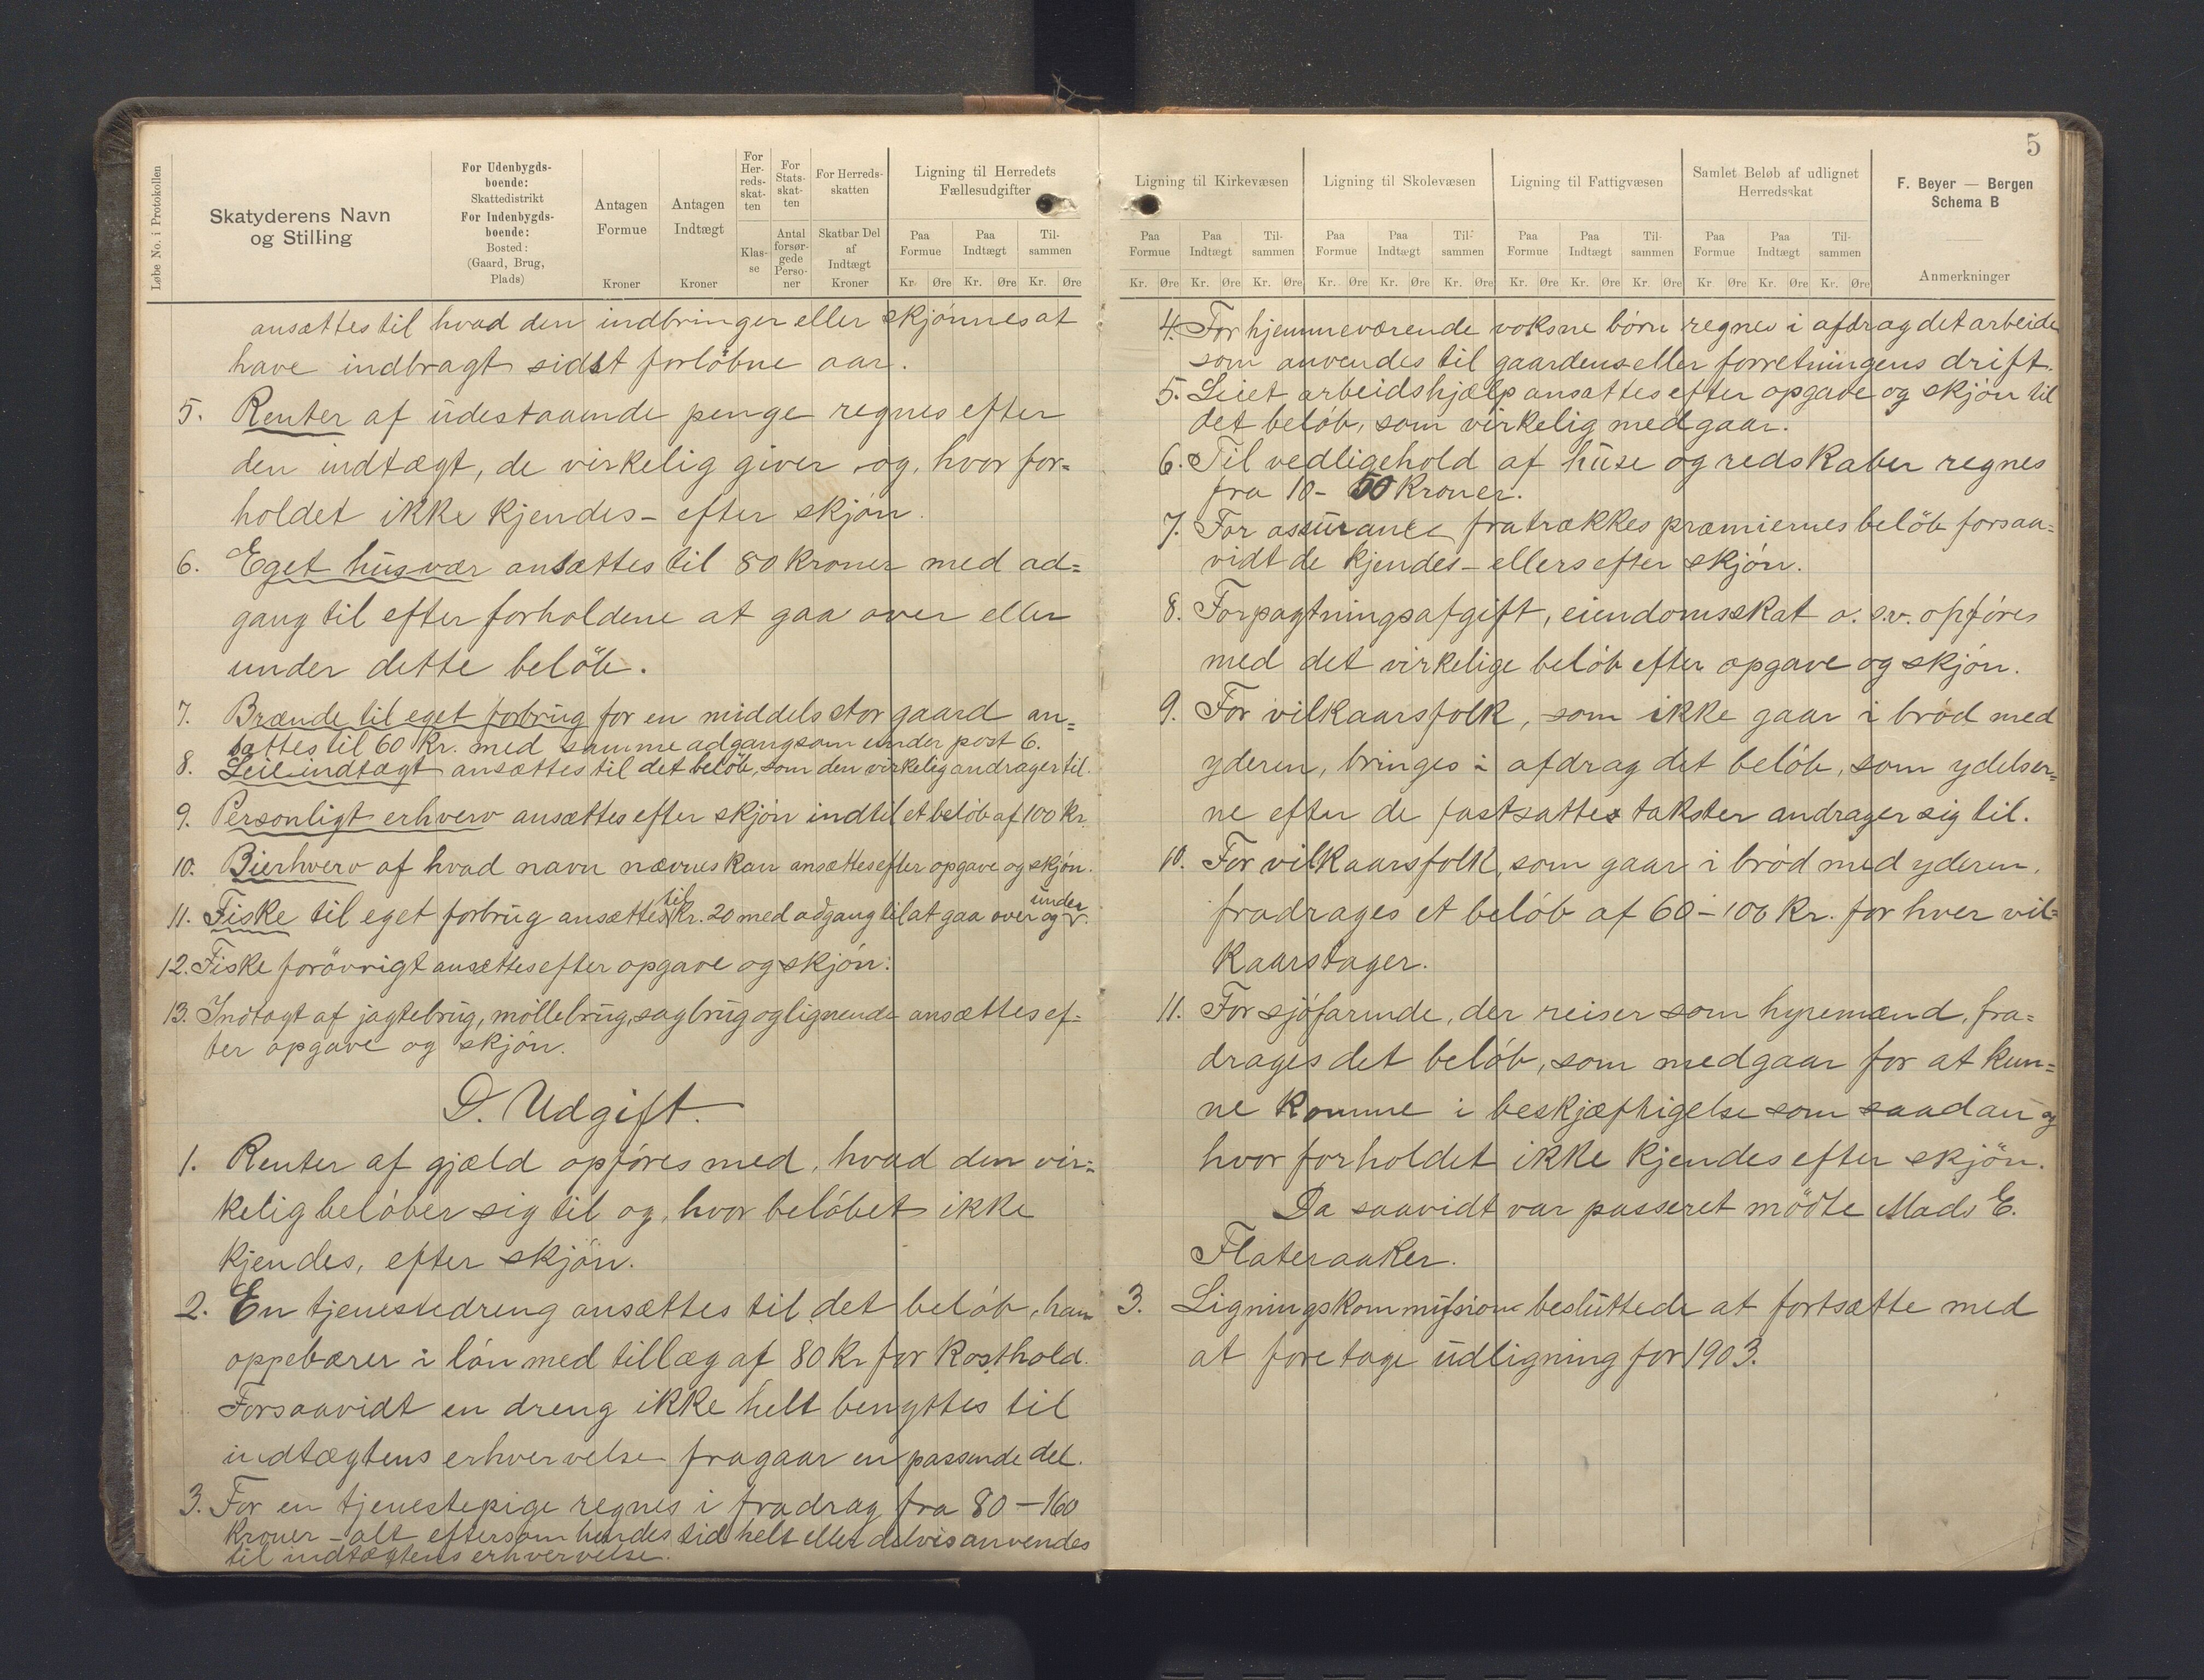 Løbe No. i Protokollen
Skatyderens Navn
og Stilling
For Udenbygds-
boende:
Skattedistrikt
For Indenbygds-
boende:
Bosted:
(Gaard, Brug,
Plads)
Antagen
Formue
Kroner
Antagen
Indtægt
Kroner
For
Her-
reds-
skat-
ten
Klas-
se
For
Stats-
skat-
ten
Antal
forsør-
gede
Perso-
ner
For Herreds-
skatten
Skatbar Del
af
Indtægt
Kroner
Ligning til Herredets
Fællesudgifter
Paa
Formue
Paa
Indtægt
Til-
sammen
Kr. Øre Kr. Øre Kr. Øre
ansættes til hvad den indbringer eller skjønnes at
have indbragt sidst forløbne aar.
5. Renter af udestaaende penge regnes efter
den indtægt, de virkelig giver og, hvor for=
holdet ikke kjendes - efter skjøn.
6. Eget husvær ansættes til 80 kroner med ad=
gang til efter forholdene at gaa over eller
under dette beløb.
7. Brænde til eget forbrug for en middels stor gaard an=
sættes til 60 Kr. med samme adgang som under post 6.
8. Leieindtægt ansættes til det beløb, som den virkelig andrager til.
9. Personligt erhverv ansættes efter skjøn indtil et beløb af 100 kr.
10. Bierhverv af hvad navn nævnes kan ansættes efter opgave og skjøn.
11. Fiske til eget forbrug ansættes til Kr. 20 med adgang til at gaa over og under.
12. Fiske forøvrigt ansættes efter opgave og skjøn.
13. Indtægt af jagtebrug, møllebrug, sagbrug og lignende ansættes ef=
ter opgave og skjøn.
D. Udgift.
1. Renter af gjæld opføres med, hvad den vir=
kelig beløber sig til og, hvor beløbet ikke
kjendes, efter skjøn.
2. En tjenestedreng ansættes til det beløb, han
oppebærer i løn med tillæg af 80 Kr for kosthold.
Forsaavidt en dreng ikke helt benyttes til
indtægtens erhvervelse fragaar en passende del.
3. For en tjenestepige regnes i fradrag fra 80 - 160
kroner - alt eftersom hendes tid helt eller delvis anvendes
til indtægtens erhvervelse.
5
Ligning til Kirkevæsen
Ligning til Skolevæsen
Ligning til Fattigvæsen
Samlet Beløb af udlignet
Herredsskat
F. Beyer — Bergen
Schema B
Anmerkninger
Paa
Formue
Paa
Indtægt
Til-
sammen
Paa
Formue
Paa
Indtægt
Til-
sammen
Paa
Formue
Paa
Indtægt
Til-
sammen
Paa
Formue
Paa
Indtægt
Til-
sammen
Kr. Øre Kr. Øre Kr. Øre Kr. Øre Kr. Øre Kr. Øre Kr. Øre Kr. Øre Kr. Øre Kr. Øre Kr. Øre Kr. Øre
4. For hjemmeværende voksne børn regnes i afdrag det arbeide
som anvendes til gaardens eller forretningens drift.
5. Leiet arbeidshjælp ansættes efter opgave og skjøn til
det beløb, som virkelig medgaar.
6. Til vedligehold af huse og redskaber regnes
fra 10 - 50 Kroner.
7. For assurance fratrækkes præmiernes beløb forsaa=
vidt de kjendes - ellers efter skjøn.
8. Forpagtningsafgift, eiendomsskat o. s.v. opføres
med det virkelige beløb efter opgave og skjøn.
9. For vilkaarsfolk, som ikke gaar i brød med
yderen, bringes i afdrag det beløb, som ydelser=
ne efter de fastsatte takster andrager sig til.
10. For vilkaarsfolk, som gaar i brød med yderen,
fradrages et beløb af 60 - 100 Kr. for hver vil=
kaarstager.
11. For sjøfarende, der reiser som hyremænd, fra=
drages det beløb, som medgaar for at kun=
ne komme i beskjæftigelse som saadan og
hvor forholdet ikke kjendes efter skjøn.
Da saavidt var passeret mødte Mads E.
Flateraaker.
3. Ligningskommissionen besluttede at fortsætte med
at foretage udligning for 1903.